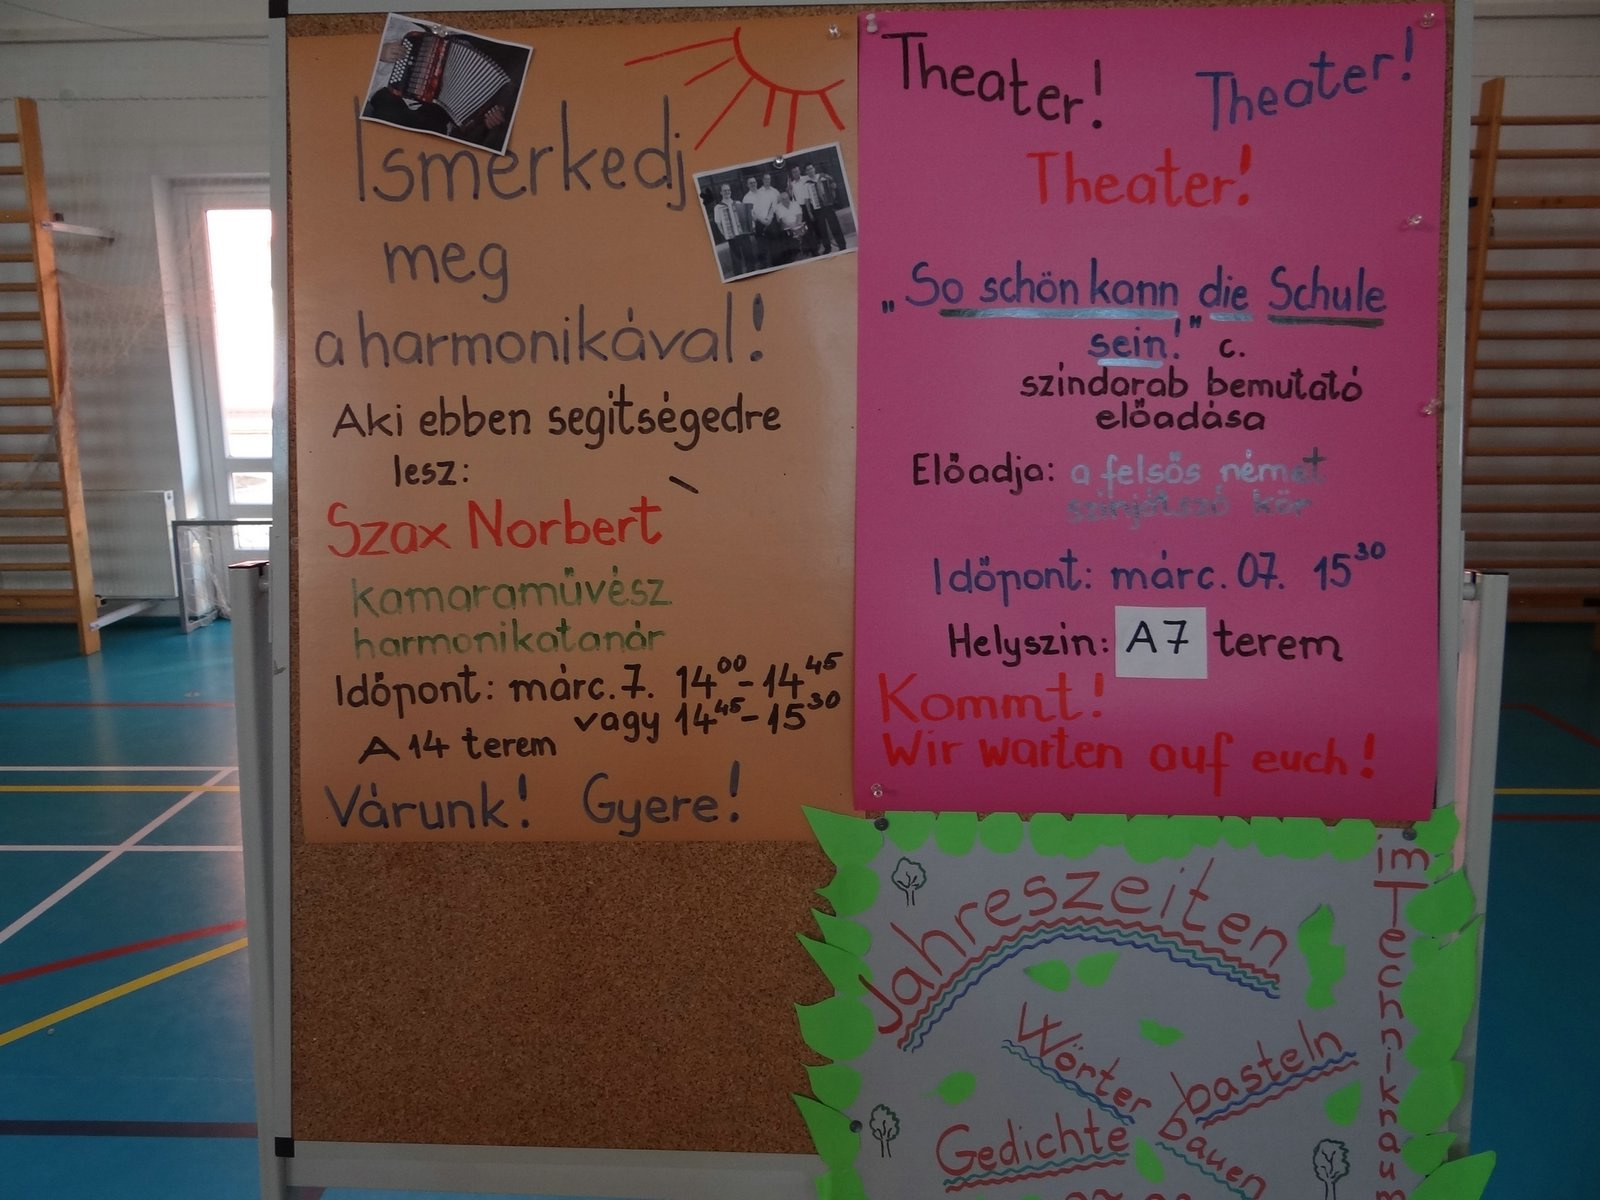 Ismerkedj
meg
a harmonikával!
Aki ebben segítségedre
lesz:
Szax Norbert
kamaraművész
harmonikatanár
Időpont: márc. 7. 14⁰⁰-14⁴⁵
vagy 14⁴⁵-15³⁰
A 14 terem
Várunk! Gyere!
Theater! Theater!
Theater!
„So schön kann die Schule
sein!" c.
színdarab bemutató
előadása
Előadja: a felsős német
színjátszó kör
Időpont: márc. 07. 15³⁰
Helyszín: A7 terem
Kommt!
Wir warten auf euch!
Jahreszeiten
im Technikraum
Wörter basteln
Gedichte bauen